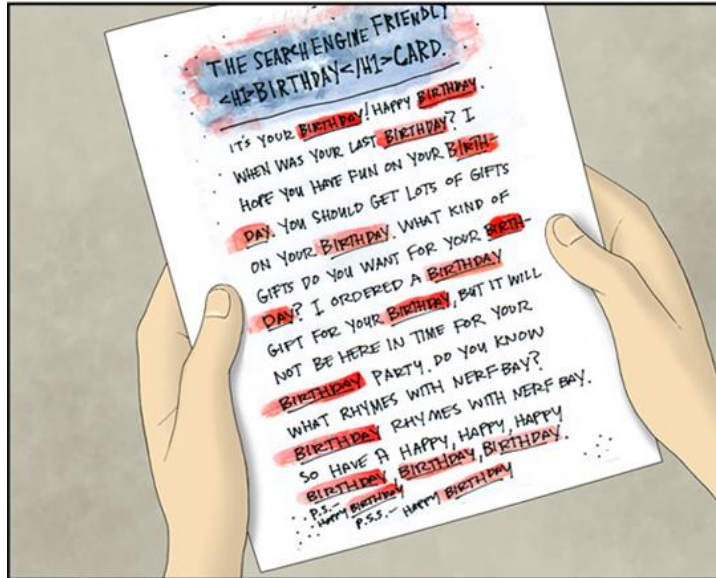 THE SEARCH ENGINE FRIENDLY
<H1>BIRTHDAY</H1>CARD.
IT'S YOUR BIRTHDAY! HAPPY BIRTHDAY.
WHEN WAS YOUR LAST BIRTHDAY? I
HOPE YOU HAVE FUN ON YOUR BIRTH-
DAY. YOU SHOULD GET LOTS OF GIFTS
ON YOUR BIRTHDAY. WHAT KIND OF
GIFTS DO YOU WANT FOR YOUR BIRTH-
DAY? I ORDERED A BIRTHDAY
GIFT FOR YOUR BIRTHDAY, BUT IT WILL
NOT BE HERE IN TIME FOR YOUR
BIRTHDAY PARTY. DO YOU KNOW
WHAT RHYMES WITH NERF BAY?
BIRTHDAY RHYMES WITH NERF BAY.
SO HAVE A HAPPY, HAPPY, HAPPY
BIRTHDAY, BIRTHDAY, BIRTHDAY.
P.S.- HAPPY BIRTHDAY
P.S.S.- HAPPY BIRTHDAY